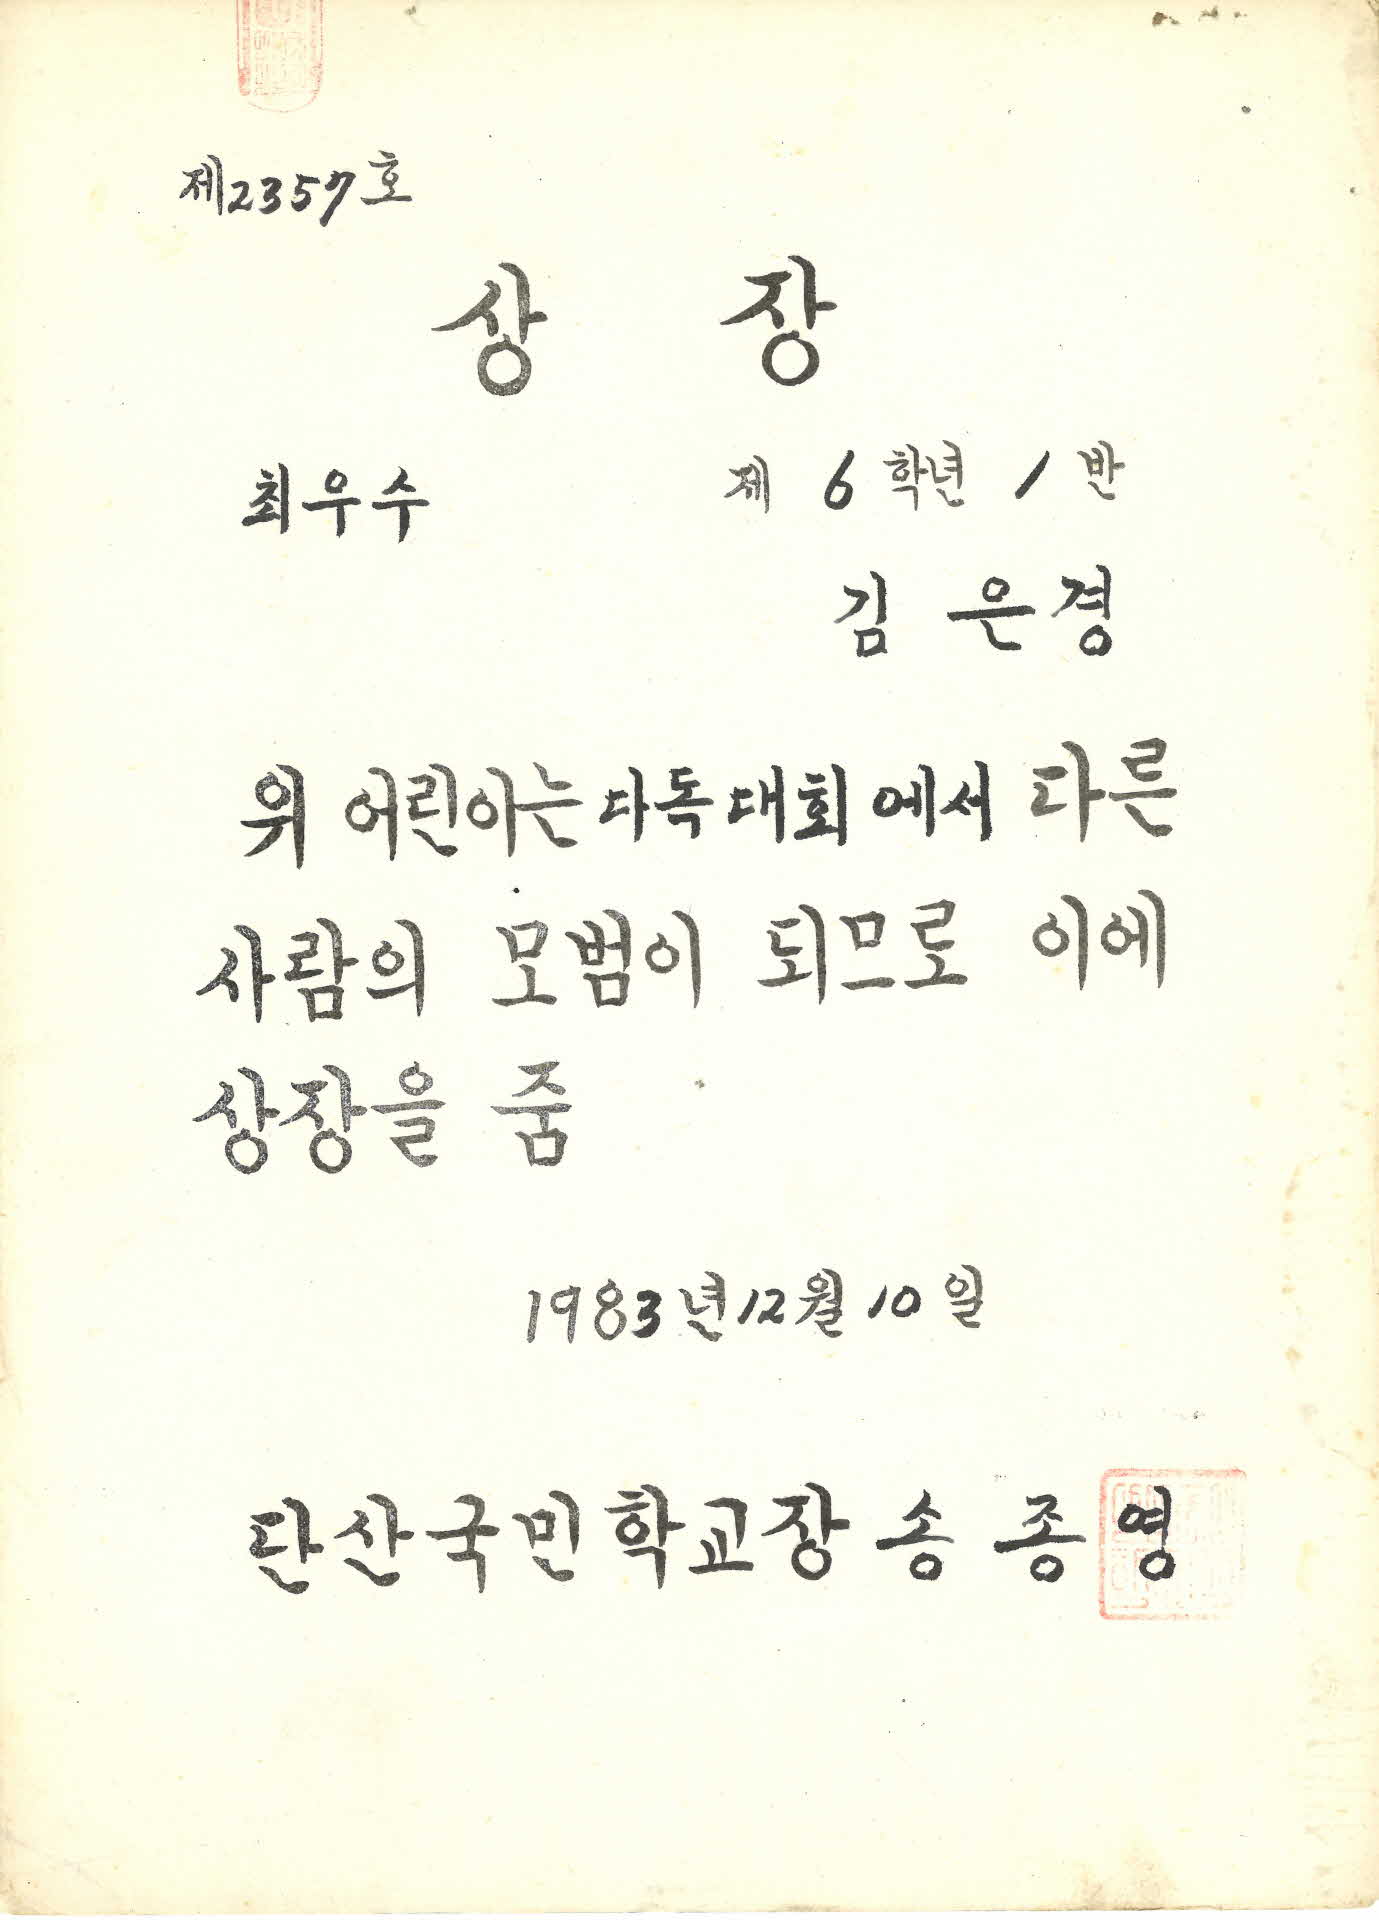 제2357호
상 장
최우수 제 6 학년 1 반
김 은경
위 어린이는 다독대회에서 다른
사람의 모범이 되므로 이에
상장을 줌
1983년 12월 10일
단산국민학교장 송 종 영